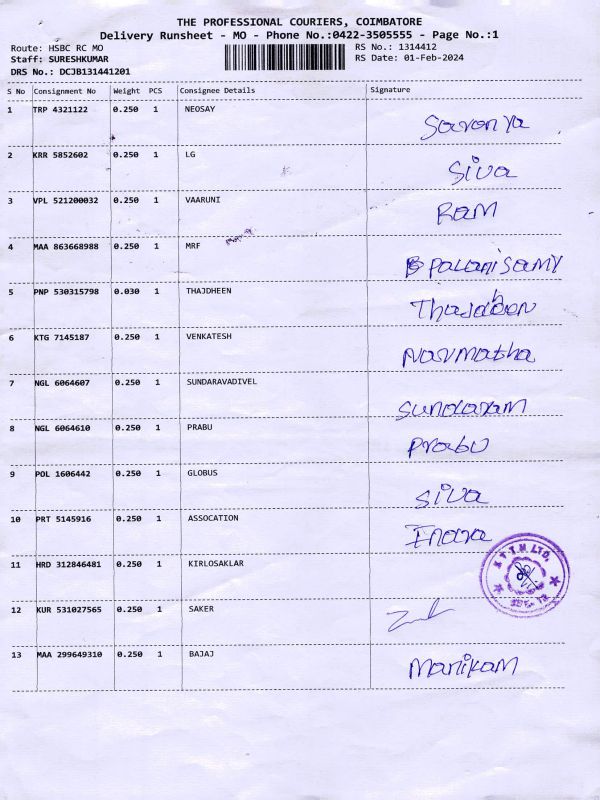 THE PROFESSIONAL COURIERS, COIMBATORE
Delivery Runsheet - MO - Phone No.:0422-3505555 - Page No.:1
Route: HSBC RC MO RS No.: 1314412
Staff: SURESHKUMAR RS Date: 01-Feb-2024
DRS No.: DCJB131441201
S No Consignment No Weight PCS Consignee Details Signature
1 TRP 4321122 0.250 1 NEOSAY Saranya
2 KRR 5852602 0.250 1 LG Siva
3 VPL 521200032 0.250 1 VAARUNI RAM
4 MAA 863668988 0.250 1 MRF palanisamy
5 PNP 530315798 0.030 1 THAJDHEEN Thajdheen
6 KTG 7145187 0.250 1 VENKATESH Narmatha
7 NGL 6064607 0.250 1 SUNDARAVADIVEL Sundaram
8 NGL 6064610 0.250 1 PRABU Prabu
9 POL 1606442 0.250 1 GLOBUS Siva
10 PRT 5145916 0.250 1 ASSOCATION
11 HRD 312846481 0.250 1 KIRLOSAKLAR
12 KUR 531027565 0.250 1 SAKER
13 MAA 299649310 0.250 1 BAJAJ Manikam